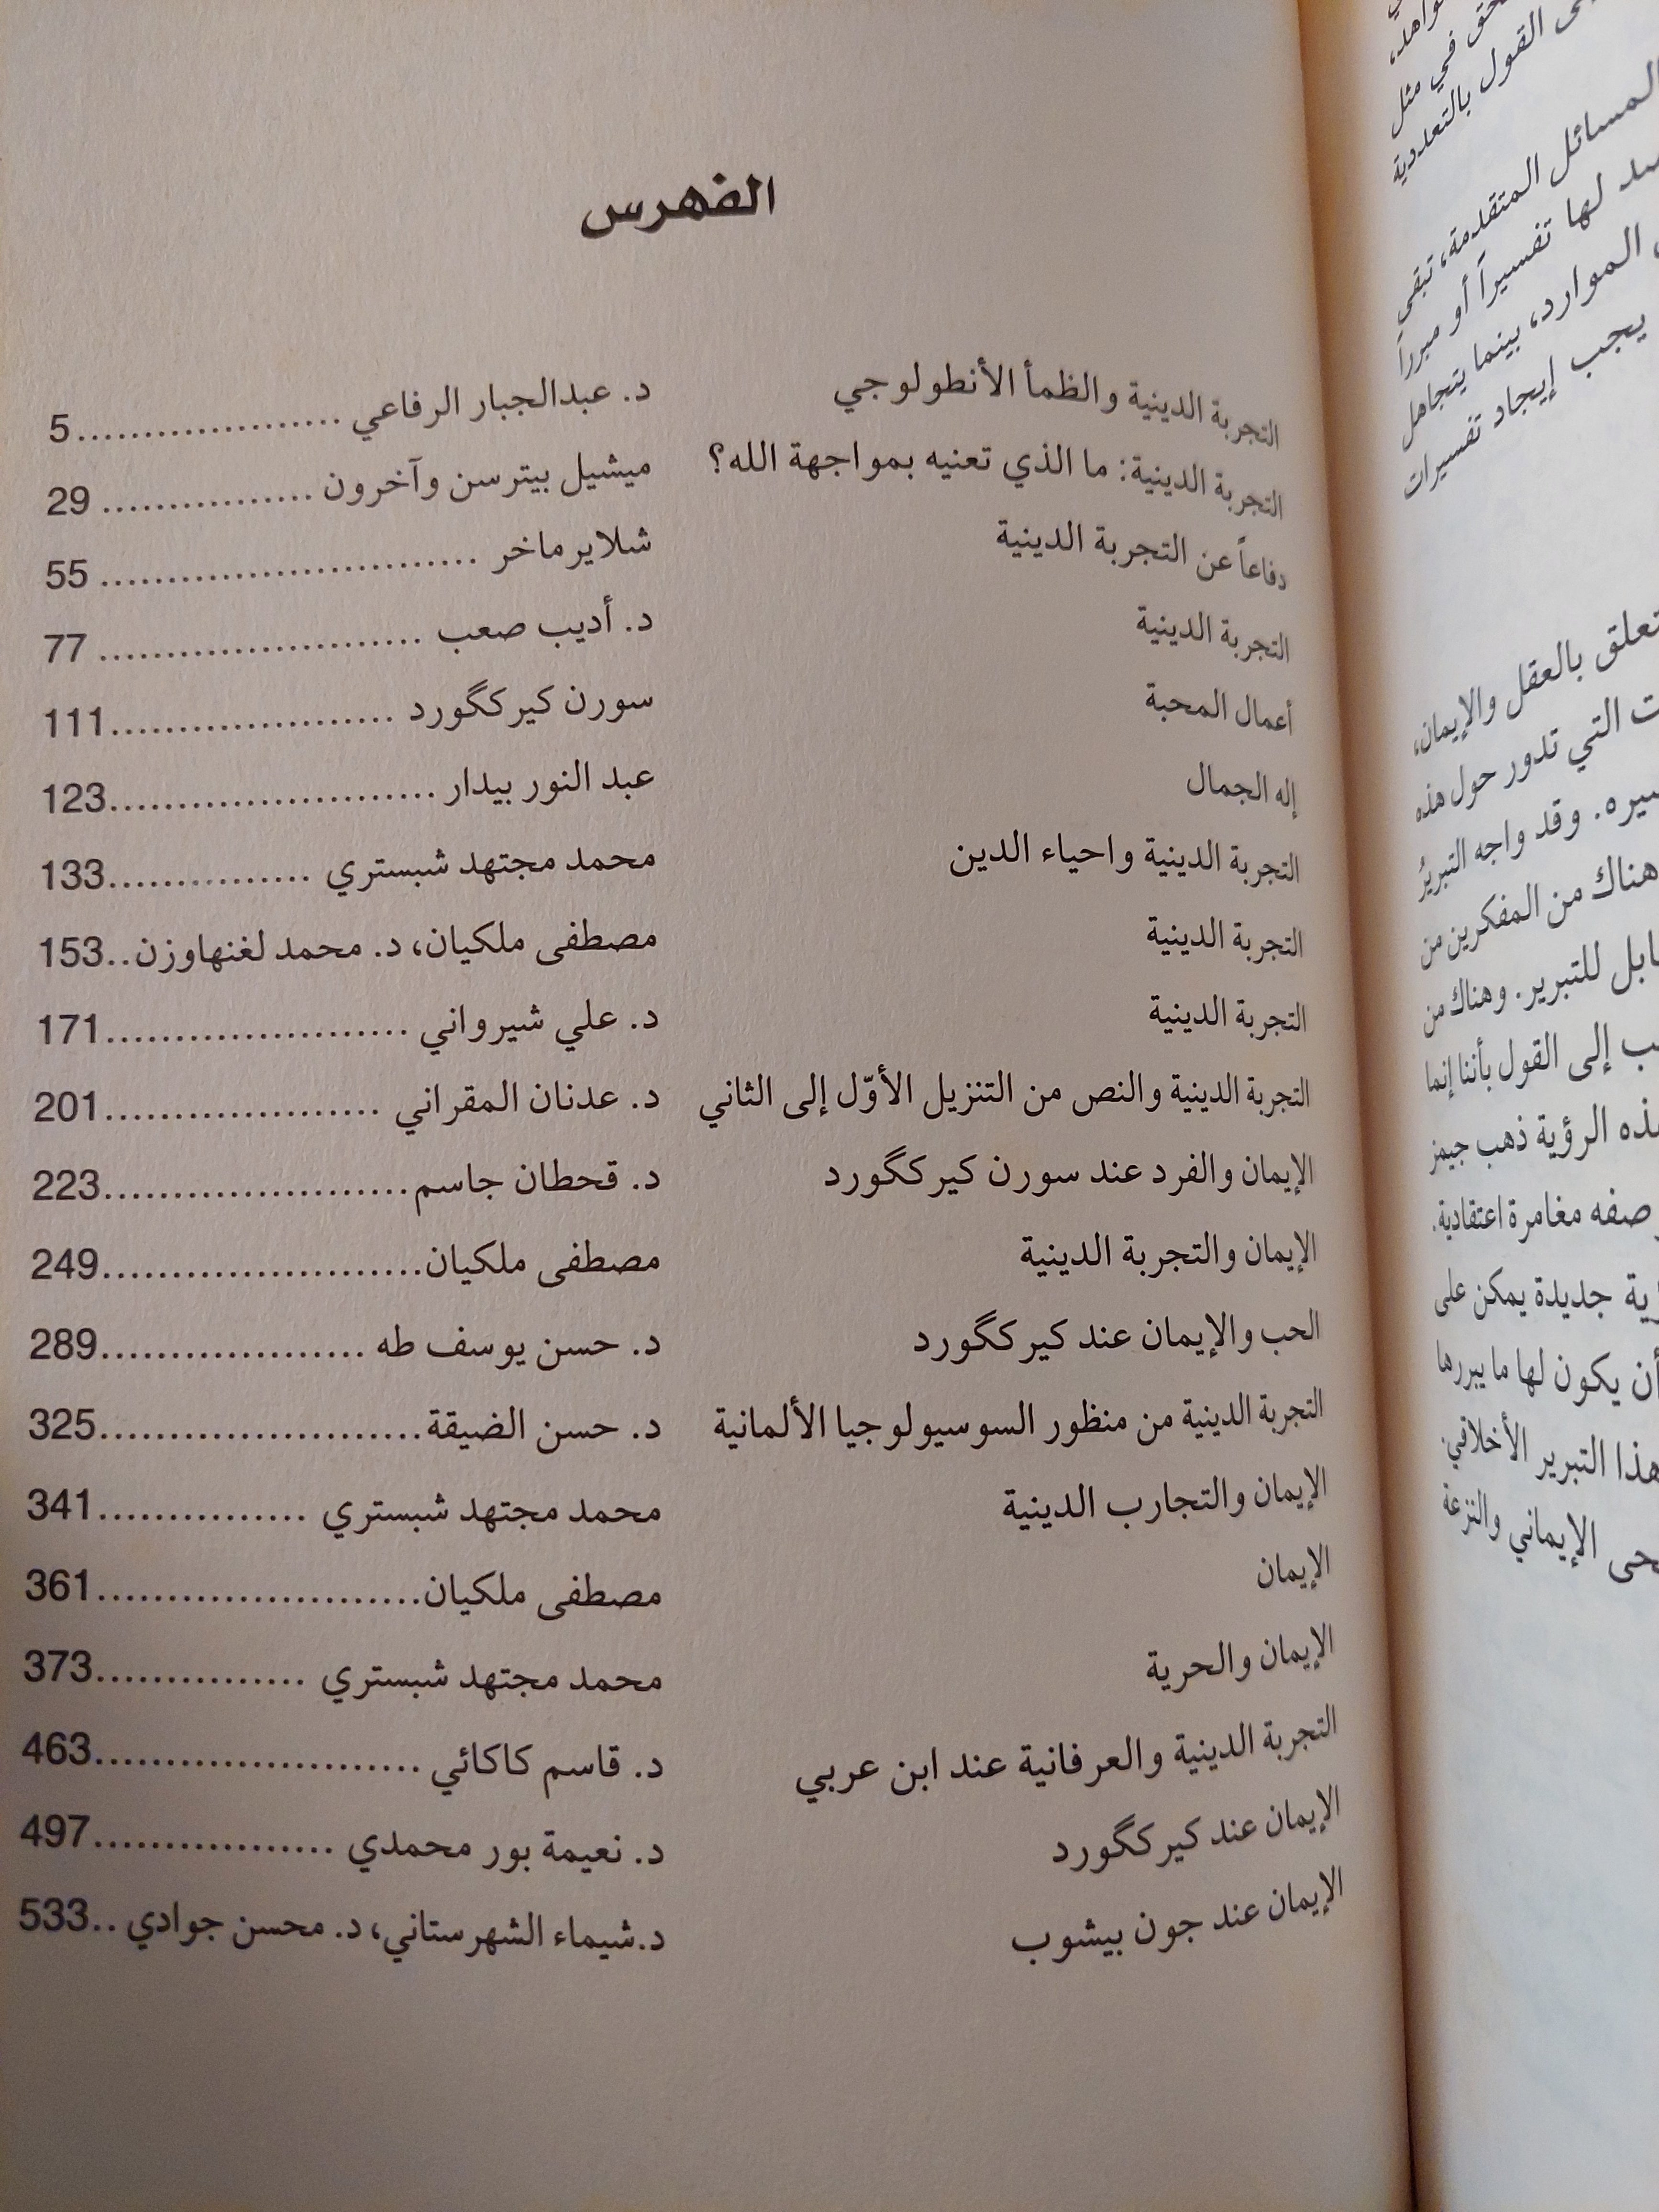 الفهرس
التجربة الدينية والظمأ الأنطولوجي د. عبدالجبار الرفاعي ..................... 5
التجربة الدينية: ما الذي تعنيه بمواجهة الله؟ ميشيل بيترسن وآخرون ................ 29
دفاعاً عن التجربة الدينية شلايرماخر ............................ 55
التجربة الدينية د. أديب صعب ........................ 77
أعمال المحبة سورن كيركگورد ...................... 111
إله الجمال عبد النور بيدار ......................... 123
التجربة الدينية واحياء الدين محمد مجتهد شبستري ................ 133
التجربة الدينية مصطفى ملكيان، د. محمد لغنهاوزن.. 153
التجربة الدينية د. علي شيرواني ....................... 171
التجربة الدينية والنص من التنزيل الأوّل إلى الثاني د. عدنان المقراني ..................... 201
الإيمان والفرد عند سورن كيركگورد د. قحطان جاسم....................... 223
الإيمان والتجربة الدينية مصطفى ملكيان........................ 249
الحب والإيمان عند كيركگورد د. حسن يوسف طه .................... 289
التجربة الدينية من منظور السوسيولوجيا الألمانية د. حسن الضيقة........................ 325
الإيمان والتجارب الدينية محمد مجتهد شبستري ................ 341
الإيمان مصطفى ملكيان........................ 361
الإيمان والحرية محمد مجتهد شبستري ................ 373
التجربة الدينية والعرفانية عند ابن عربي د. قاسم كاكائي ........................ 463
الإيمان عند كيركگورد د. نعيمة بور محمدي .................. 497
الإيمان عند جون بيشوب د.شيماء الشهرستاني، د. محسن جوادي .. 533
في مثل
القول بالتعددية
المسائل المتقدمة، تبقى
لها تفسيراً أو مبرراً
الموارد، بينما يتجاهل
يجب إيجاد تفسيرات
بالعقل والإيمان،
التي تدور حول هذه
وقد واجه التبريرُ
هناك من المفكرين من
للتبرير. وهناك من
إلى القول بأننا إنما
الرؤية ذهب جيمز
مغامرة اعتقادية.
جديدة يمكن على
أن يكون لها ما يبررها
هذا التبرير الأخلاقي
الإيماني والنزعة